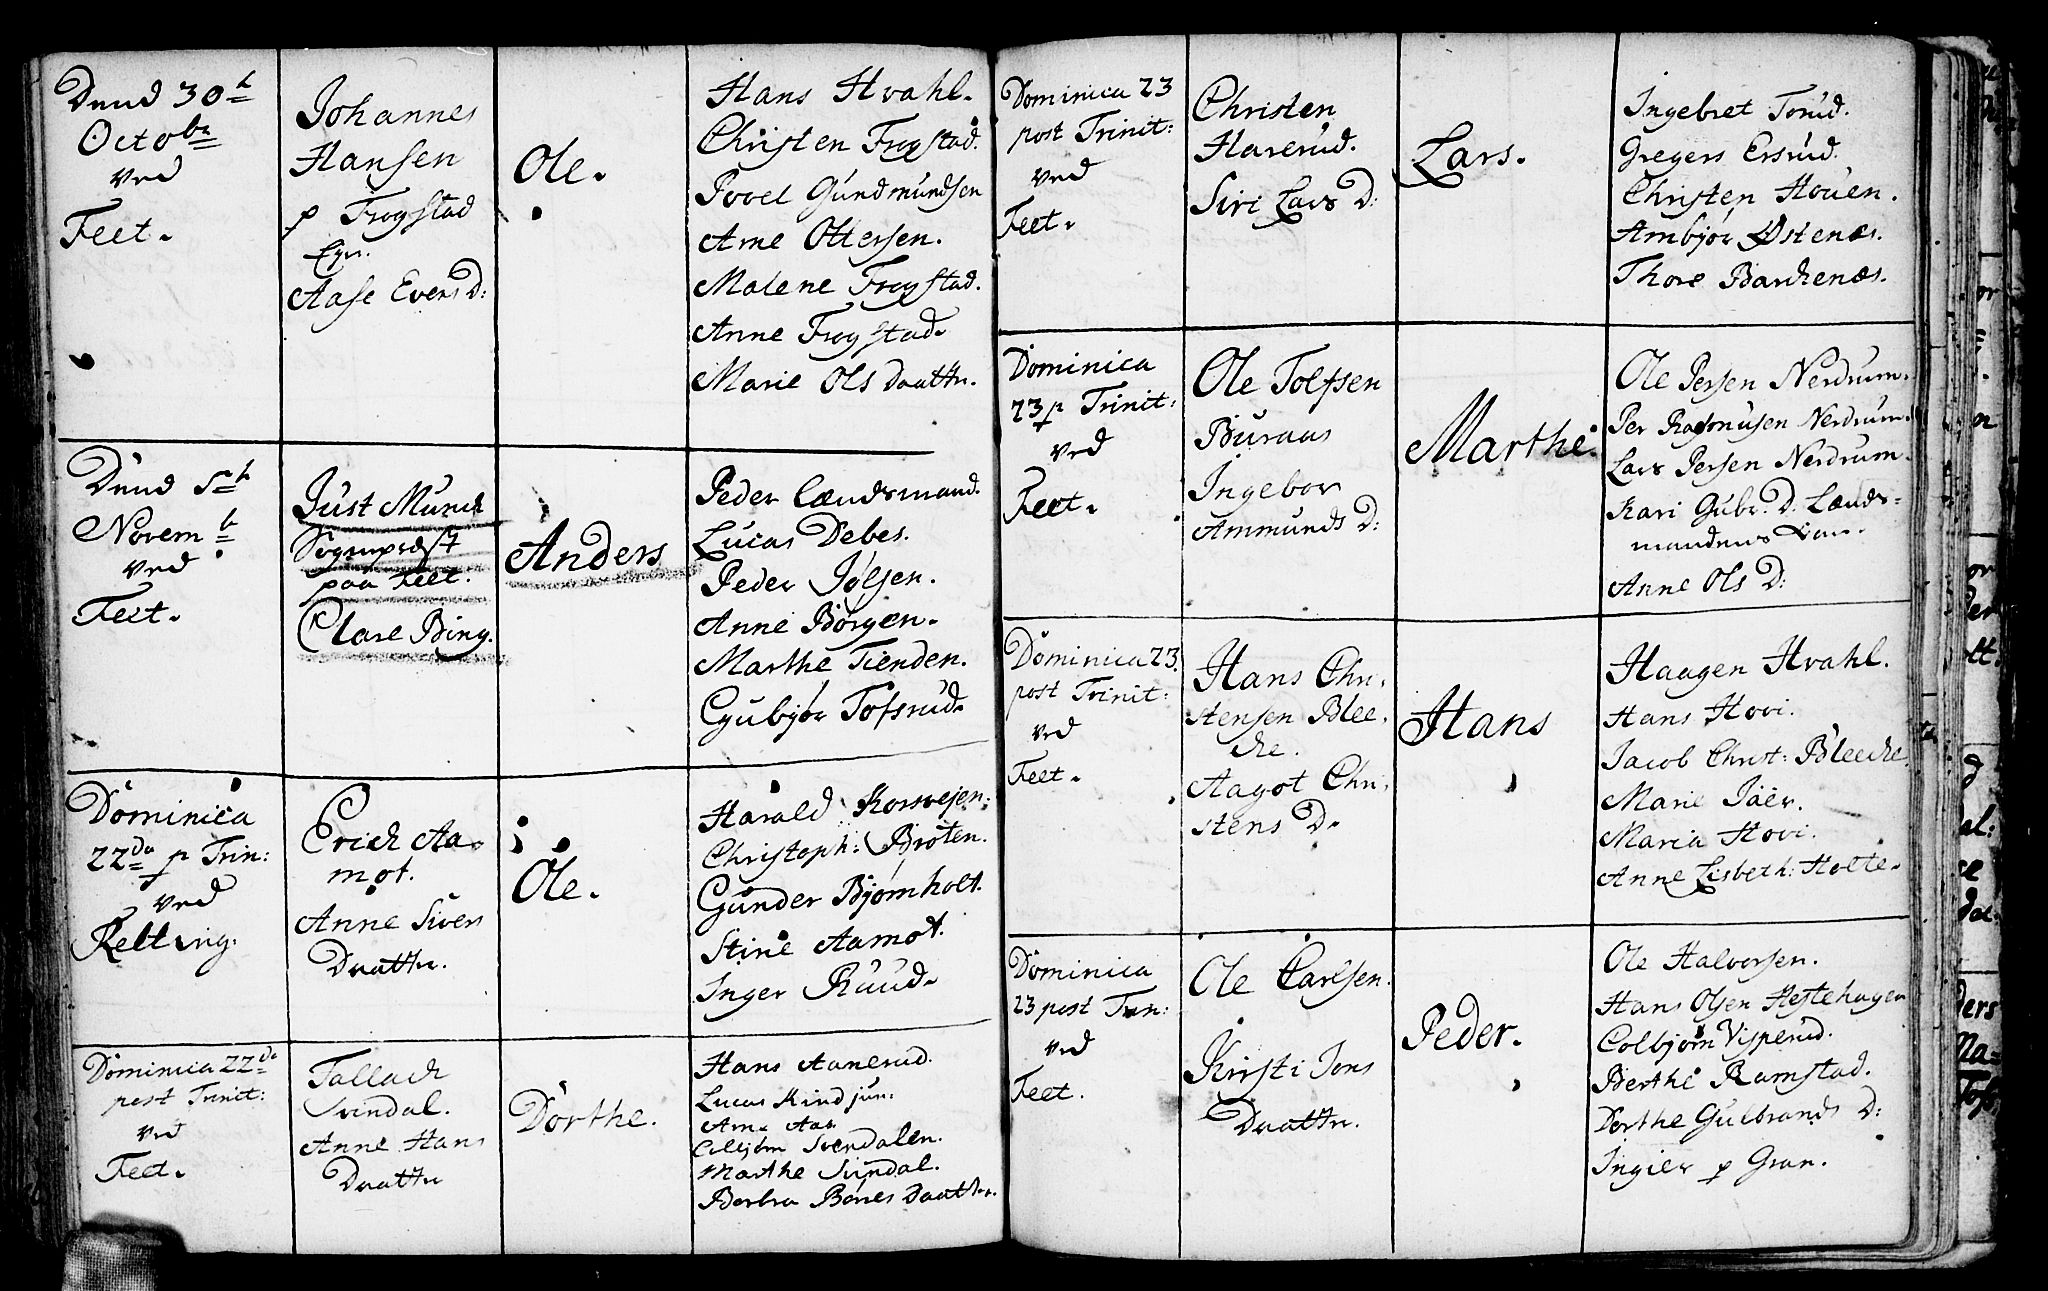 Dend 30te
Octobr
ved
Feet.
Johannes
Hansen
p Frogstad
Egn.
Aase Evers D:
Ole.
Hans Hvahl.
Christen Frogstad.
Povel Gundmundsen
Arne Ottersen.
Malene Frogstad.
Anne Frogstad.
Marie Ols Daattr.
Dend 5te
Novemb
ved
Feet.
Just Munch
Sogneprest
paa Feet.
Clare Bing.
Anders
Peder Lændsmand.
Lucas Debes.
Peder Jølsen.
Anne Børgen.
Marthe Tienden.
Gubjør Tofsrud.
Dominica
22da p Trin:
ved
Retting.
Erich Aa-
mot.
Anne Sivers
Daattr.
Ole.
Harald Korsvejen:
Christoph: Broten.
Gunder Bjørnholt.
Stine Aamot.
Inger Ruud.
Dominica 22da
post Trinit:
ved
Feet.
Tallach
Svendal.
Anne Hans
Daattr
Dorthe.
Hans Aanerud.
Lucas Kindjun:
Arne Aas
Colbjørn Svendalen.
Marthe Svindal.
Berbra Børes Daattr.
Dominica 23
post Trinit:
ved
Feet.
Christen
Harerud.
Siri Lars D:
Lars.
Ingebret Torud.
Gregers Ersrud.
Christen Houen.
Ambjør Østenæs.
Thore Barchenæs.
Dominica
23 p Trinit:
ved
Feet.
Ole Tolfsen
Buraas
Ingebor
Ammunds D:
Marthe.
Ole Persen Nerdrum.
Per Rasmusen Nerdrum.
Lars Persen Nerdrum.
Kari Gubr. D. Lænds-
mandens
Anne Ols D:
Dominica 23.
post Trinit:
ved
Feet.
Hans Chri-
stensen Blee-
che.
Aagot Chri-
stens D.
Hans
Haagen Hvahl.
Hans Hovi.
Jacob Christ: Bleeche.
Marie Jäer.
Maria Hovi.
Anne Lisbeth: Holte.
Dominica
23 post Trin:
ved
Feet.
Ole Carlsen.
Kirsti Jons
Daattr.
Peder.
Ole Halvorsen.
Hans Olsen Hestehagen
Colbjørn Visperud.
Berthe Ramstad.
Dorthe Gulbrands D:
Ingier p Gran.